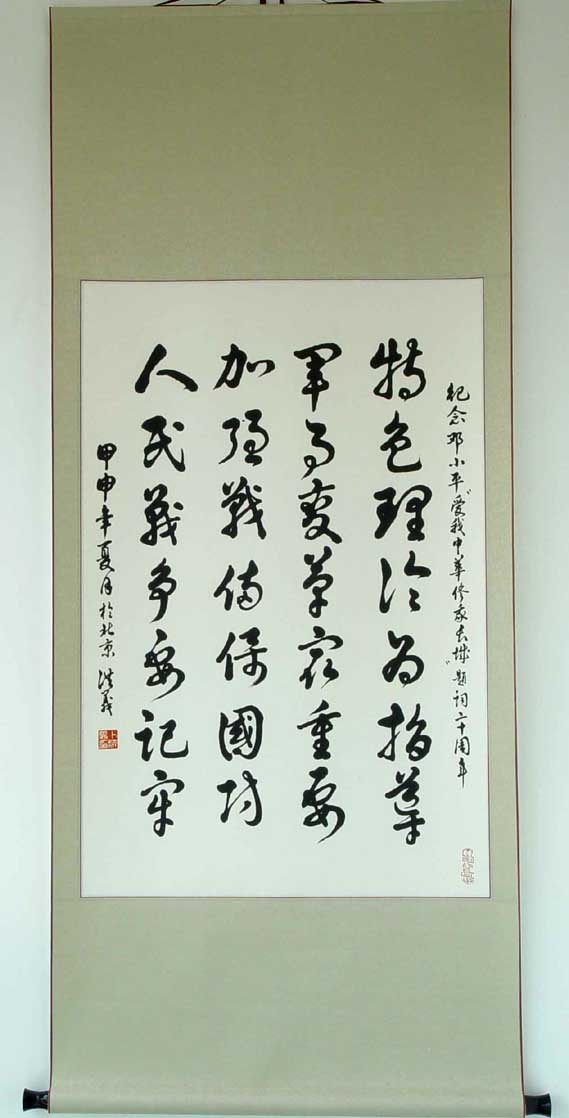 纪念邓小平"爱我中華修我长城"题词二十周年
特色理论为指导
军事变革最重要
加强戰备保國防
人民战争要记牢
甲申年夏月於北京 洪義